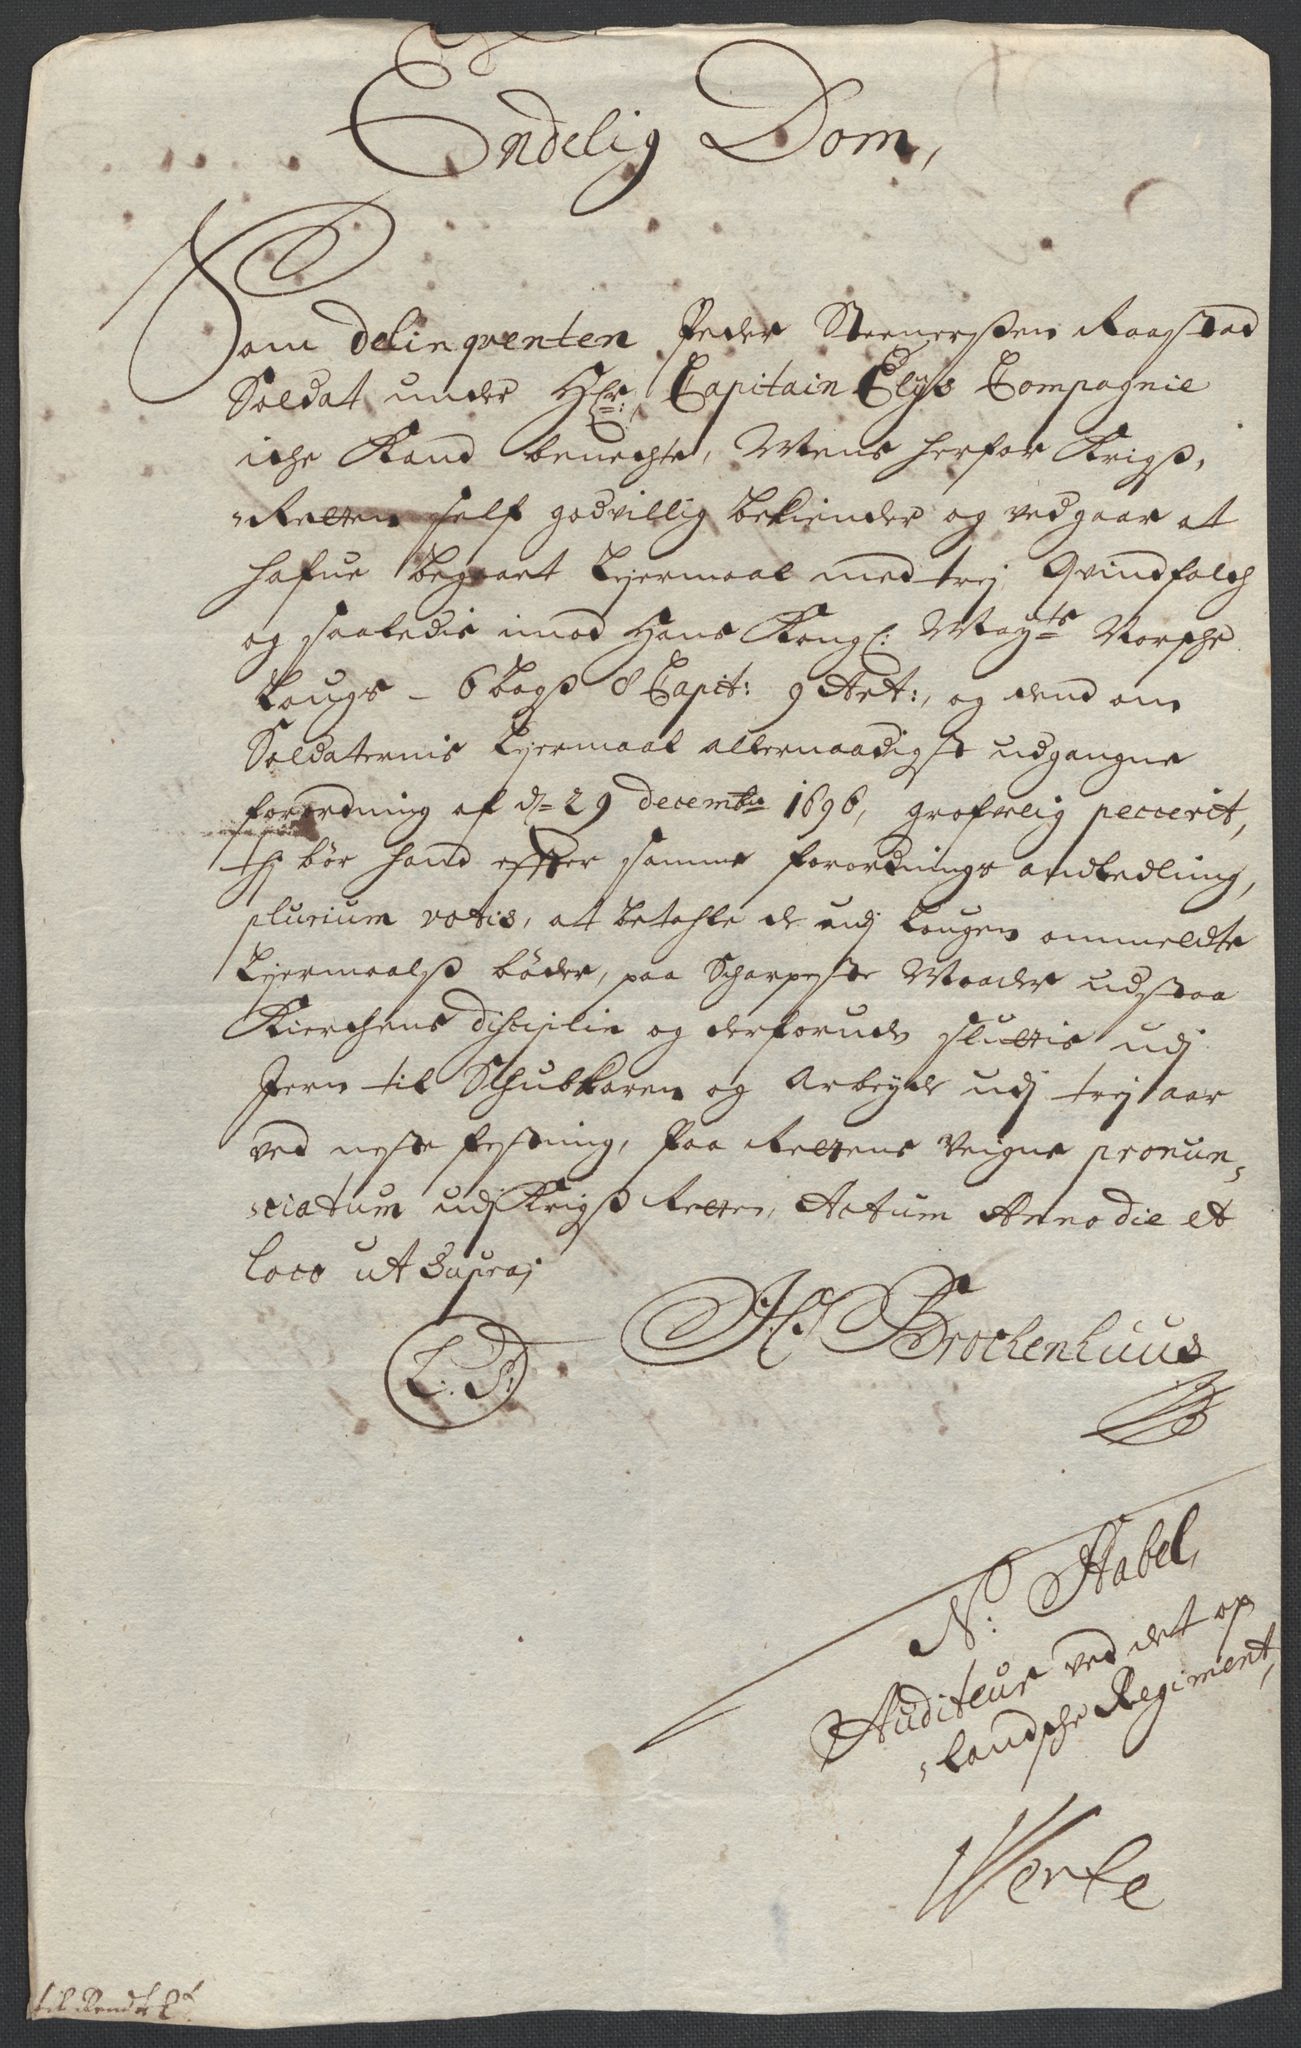 Endelig Dom,
Som delinqventen Peder Steenersßen Raastad
Soldat under Hr: Capitain Elys Compagnie
iche Kand benechte, Mens herfor Krigß,
-Retten self godvillig bekiender og vedgaar at
hafue begaaet Lejermaal med trej Qvindfolch
og saaledis imod Hans Kongl: Mayts Norsche
Laugs - 6 Bogß 8 Capit: 9 Art:, og dend om
Soldaternis Lejermaal allernaadigst udgangne
forordning af d= 29 decembr 1696, grofvelig peccerit,
thj bør hand effter samme forordnings anledning,
plurium votis, at betahle de udj Laugen ommeldte
Lejermaalß bøder, paa Scharpeste Maader udstaa
Kierchens disciplin og derforuden sluttis udj
Jern til Schubkaren og Arbeyde udj trej aar
ved neste festning, Paa Rettens Veigne pronun-
-ciatum udj Krigß Retten, Actum Anno die et
loco ut Supra,
L: S: H C Brochenhuus
N: Stabel,
Auditeur ved det op
-landsche Regiment,
Werte